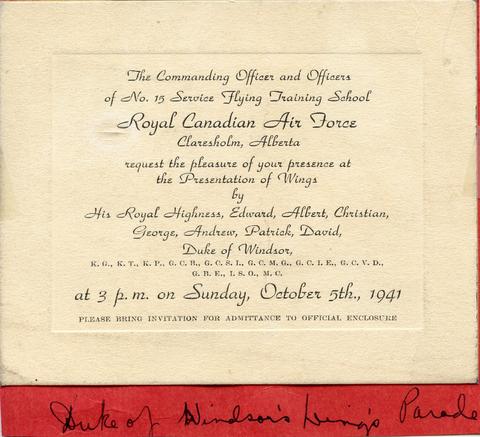 The Commanding Officer and Officers
of No. 15 Service Flying Training School
Royal Canadian Air Force
Claresholm, Alberta
request the pleasure of your presence at
the Presentation of Wings
by
His Royal Highness, Edward, Albert, Christian,
George, Andrew, Patrick, David,
Duke of Windsor,
K. G., K. T., K. P., G. C. B., G. C. S. I., G. C. M. G., G. C. I. E., G. C. V. D.,
G. B. E., I. S. O., M. C.
at 3 p. m. on Sunday, October 5th., 1941
PLEASE BRING INVITATION FOR ADMITTANCE TO OFFICIAL ENCLOSURE
Duke of Windsor's Wing's Parade